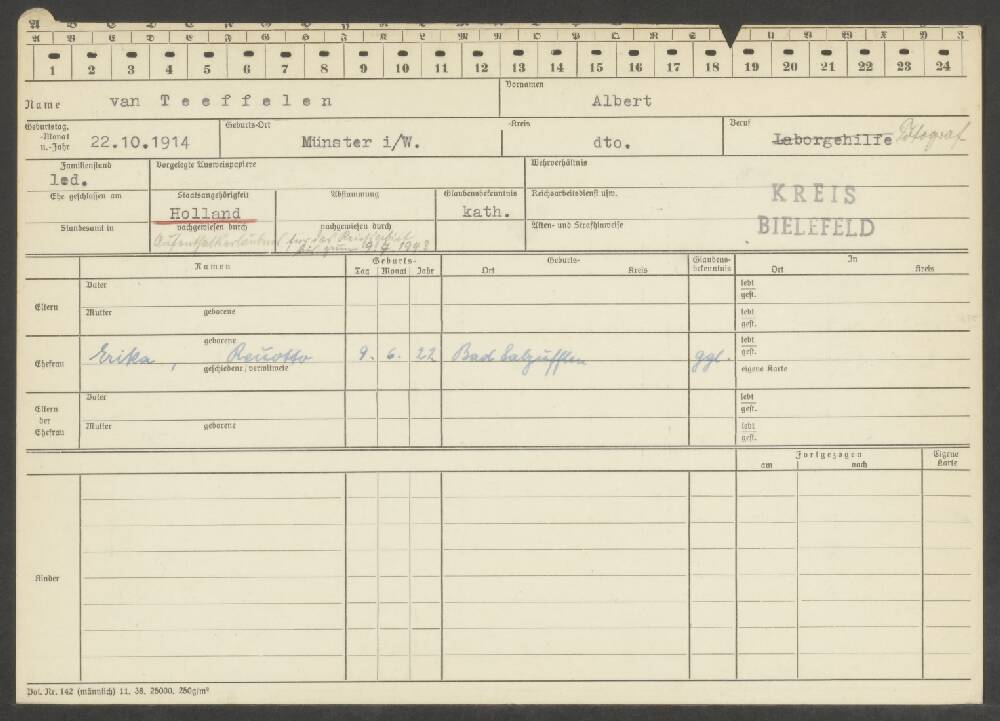 1 2 3 4 5 6 7 8 9 10 11 12 13 14 15 16 17 18 19 20 21 22 23 24
Name van Teeffelen Vornamen Albert
Geburtstag, -Monat u.-Jahr 22.10.1914 Geburts-Ort Münster i/W. -Kreis dto. Beruf Laborgehilfe Fotograf
Familienstand led. Vorgelegte Ausweispapiere Wehrverhältnis
Ehe geschlossen am Staatsangehörigkeit Holland Abstammung Glaubensbekenntnis kath. Reichsarbeitsdienst usw. KREIS
Standesamt in nachgewiesen durch nachgewiesen durch Akten- und Strafhinweise BIELEFELD
Aufenthaltserlaubnis für das Reichsgebiet
bis zum 1943
Namen Geburts- Geburts- Glaubens- In
Tag Monat Jahr Ort Kreis bekenntnis Ort Kreis
Eltern Vater lebt
gest.
Mutter geborene lebt
gest.
Ehefrau geborene lebt
Erika, 9. 6. 22 Bad Salzufflen ggl. gest.
geschiedene, verwitwete eigene Karte
Eltern der Ehefrau Vater lebt
gest.
Mutter geborene lebt
gest.
Fortgezogen Eigene
am nach Karte
Kinder
Pol. Nr. 142 (männlich) 11. 38. 25000. 250g/m²